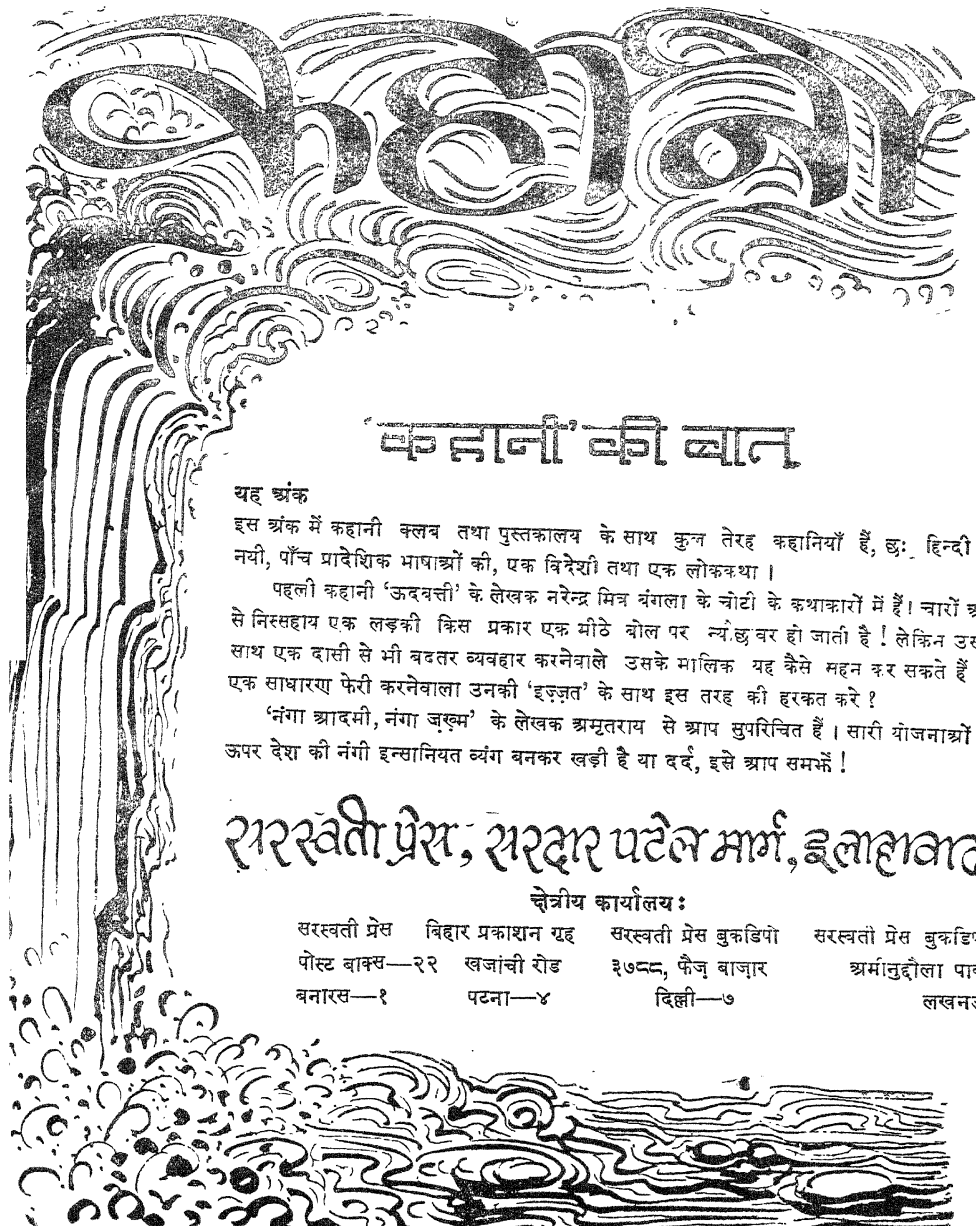 कहानी
'कहानी' की बात
यह अंक
इस अंक में कहानी क्लब तथा पुस्तकालय के साथ कुल तेरह कहानियाँ हैं, छः हिन्दी
नयी, पाँच प्रादेशिक भाषाओं की, एक विदेशी तथा एक लोककथा ।
पहली कहानी 'ऊदबत्ती' के लेखक नरेन्द्र मित्र बंगला के चोटी के कथाकारों में हैं ! चारों
से निस्सहाय एक लड़की किस प्रकार एक मीठे बोल पर न्योछावर हो जाती है ! लेकिन
साथ एक दासी से भी बदतर व्यवहार करनेवाले उसके मालिक यह कैसे सहन कर सकते हैं
एक साधारण फेरी करनेवाला उनकी 'इज़्ज़त' के साथ इस तरह की हरकत करे ?
'नंगा आदमी, नंगा ज़ख़्म' के लेखक अमृतराय से आप सुपरिचित हैं । सारी योजनाओं
ऊपर देश की नंगी इन्सानियत व्यंग बनकर खड़ी है या दर्द, इसे आप समझें !
सरस्वती प्रेस, सरदार पटेल मार्ग, इलाहाबाद
क्षेत्रीय कार्यालय :
सरस्वती प्रेस बिहार प्रकाशन गृह सरस्वती प्रेस बुकडिपो सरस्वती प्रेस
पोस्ट बाक्स—२२ खजांची रोड ३७८८, फैज़ बाज़ार अमीनुद्दौला
बनारस—१ पटना—४ दिल्ली—७ लखनऊ